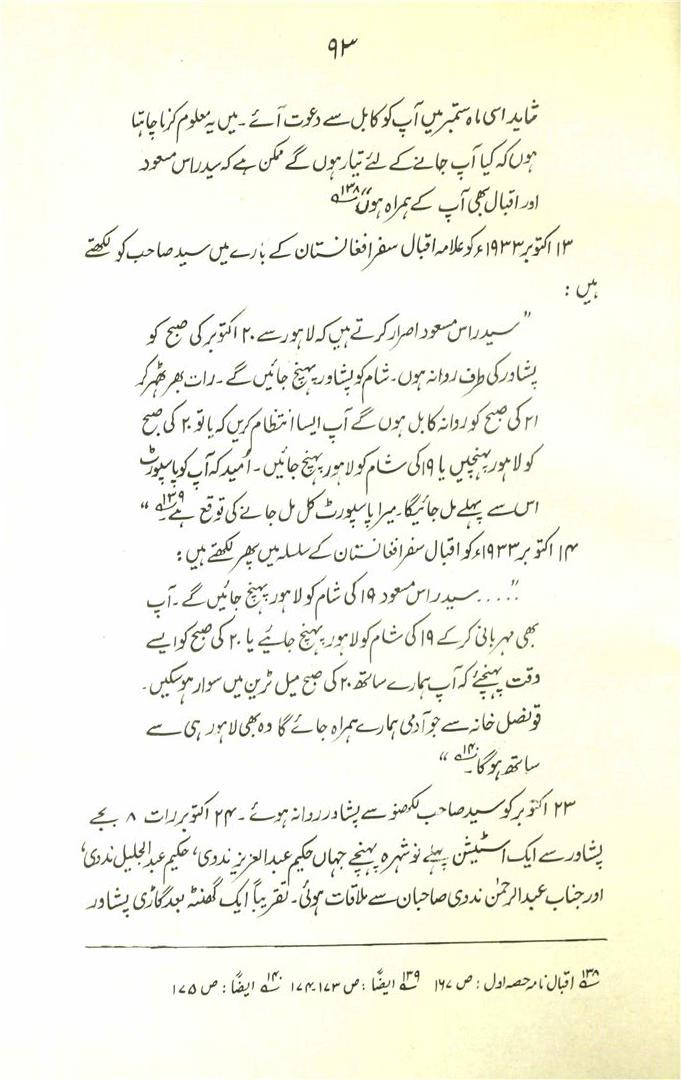 ۹۳
شاید اسی ماہ ستمبر میں آپ کو کابل سے دعوت آئے۔ میں یہ معلوم کرنا چاہتا
ہوں کہ کیا آپ جانے کے لئے تیار ہوں گے ممکن ہے کہ سید راس مسعود
اور اقبال بھی آپ کے ہمراہ ہوں"۱۳۸؎
۱۳ اکتوبر ۱۹۳۳ء کو علامہ اقبال سفر افغانستان کے بارے میں سید صاحب کو لکھتے
ہیں :
"سید راس مسعود اصرار کرتے ہیں کہ لاہور سے ۲۰ اکتوبر کی صبح کو
پشاور کی طرف روانہ ہوں۔ شام کو پشاور پہنچ جائیں گے۔ رات بھر ٹھہر کر
۲۱ کی صبح کو روانہ کابل ہوں گے آپ ایسا انتظام کریں کہ یا تو ۲۰ کی صبح
کو لاہور پہنچیں یا ۱۹ کی شام کو لاہور پہنچ جائیں۔ اُمید کہ آپ کو پاسپورٹ
اس سے پہلے مل جائیگا۔ میرا پاسپورٹ کل مل جانے کی توقع ہے۱۳۹؎۔"
۱۴ اکتوبر ۱۹۳۳ء کو اقبال سفر افغانستان کے سلسلہ میں پھر لکھتے ہیں :
"....سید راس مسعود ۱۹ کی شام کو لاہور پہنچ جائیں گے۔ آپ
بھی مہربانی کرکے ۱۹ کی شام کو لاہور پہنچ جائیے یا ۲۰ کی صبح کو ایسے
وقت پہنچئے کہ آپ ہمارے ساتھ ۲۰ کی صبح میل ٹرین میں سوار ہو سکیں۔
قونصل خانہ سے جو آدمی ہمارے ہمراہ جائے گا وہ بھی لاہور ہی سے
ساتھ ہوگا۔۱۴۰؎"
۲۳ اکتوبر کو سید صاحب لکھنو سے پشاور روانہ ہوئے ۔ ۲۴ اکتوبر رات ۸ بجے
پشاور سے ایک اسٹیشن پہلے نوشہرہ پہنچے جہاں حکیم عبدالعزیز ندوی، حکیم عبدالجلیل ندوی،
اور جناب عبدالرحمٰن ندوی صاحبان سے ملاقات ہوئی۔ تقریباً ایک گھنٹہ بعد گاڑی پشاور
۱۳۸؎ اقبال نامہ حصہ اول : ص ۱۶۷ ۱۳۹؎ ایضاً : ص ۱۷۳۔۱۷۴ ۱۴۰؎ ایضاً : ص ۱۷۵